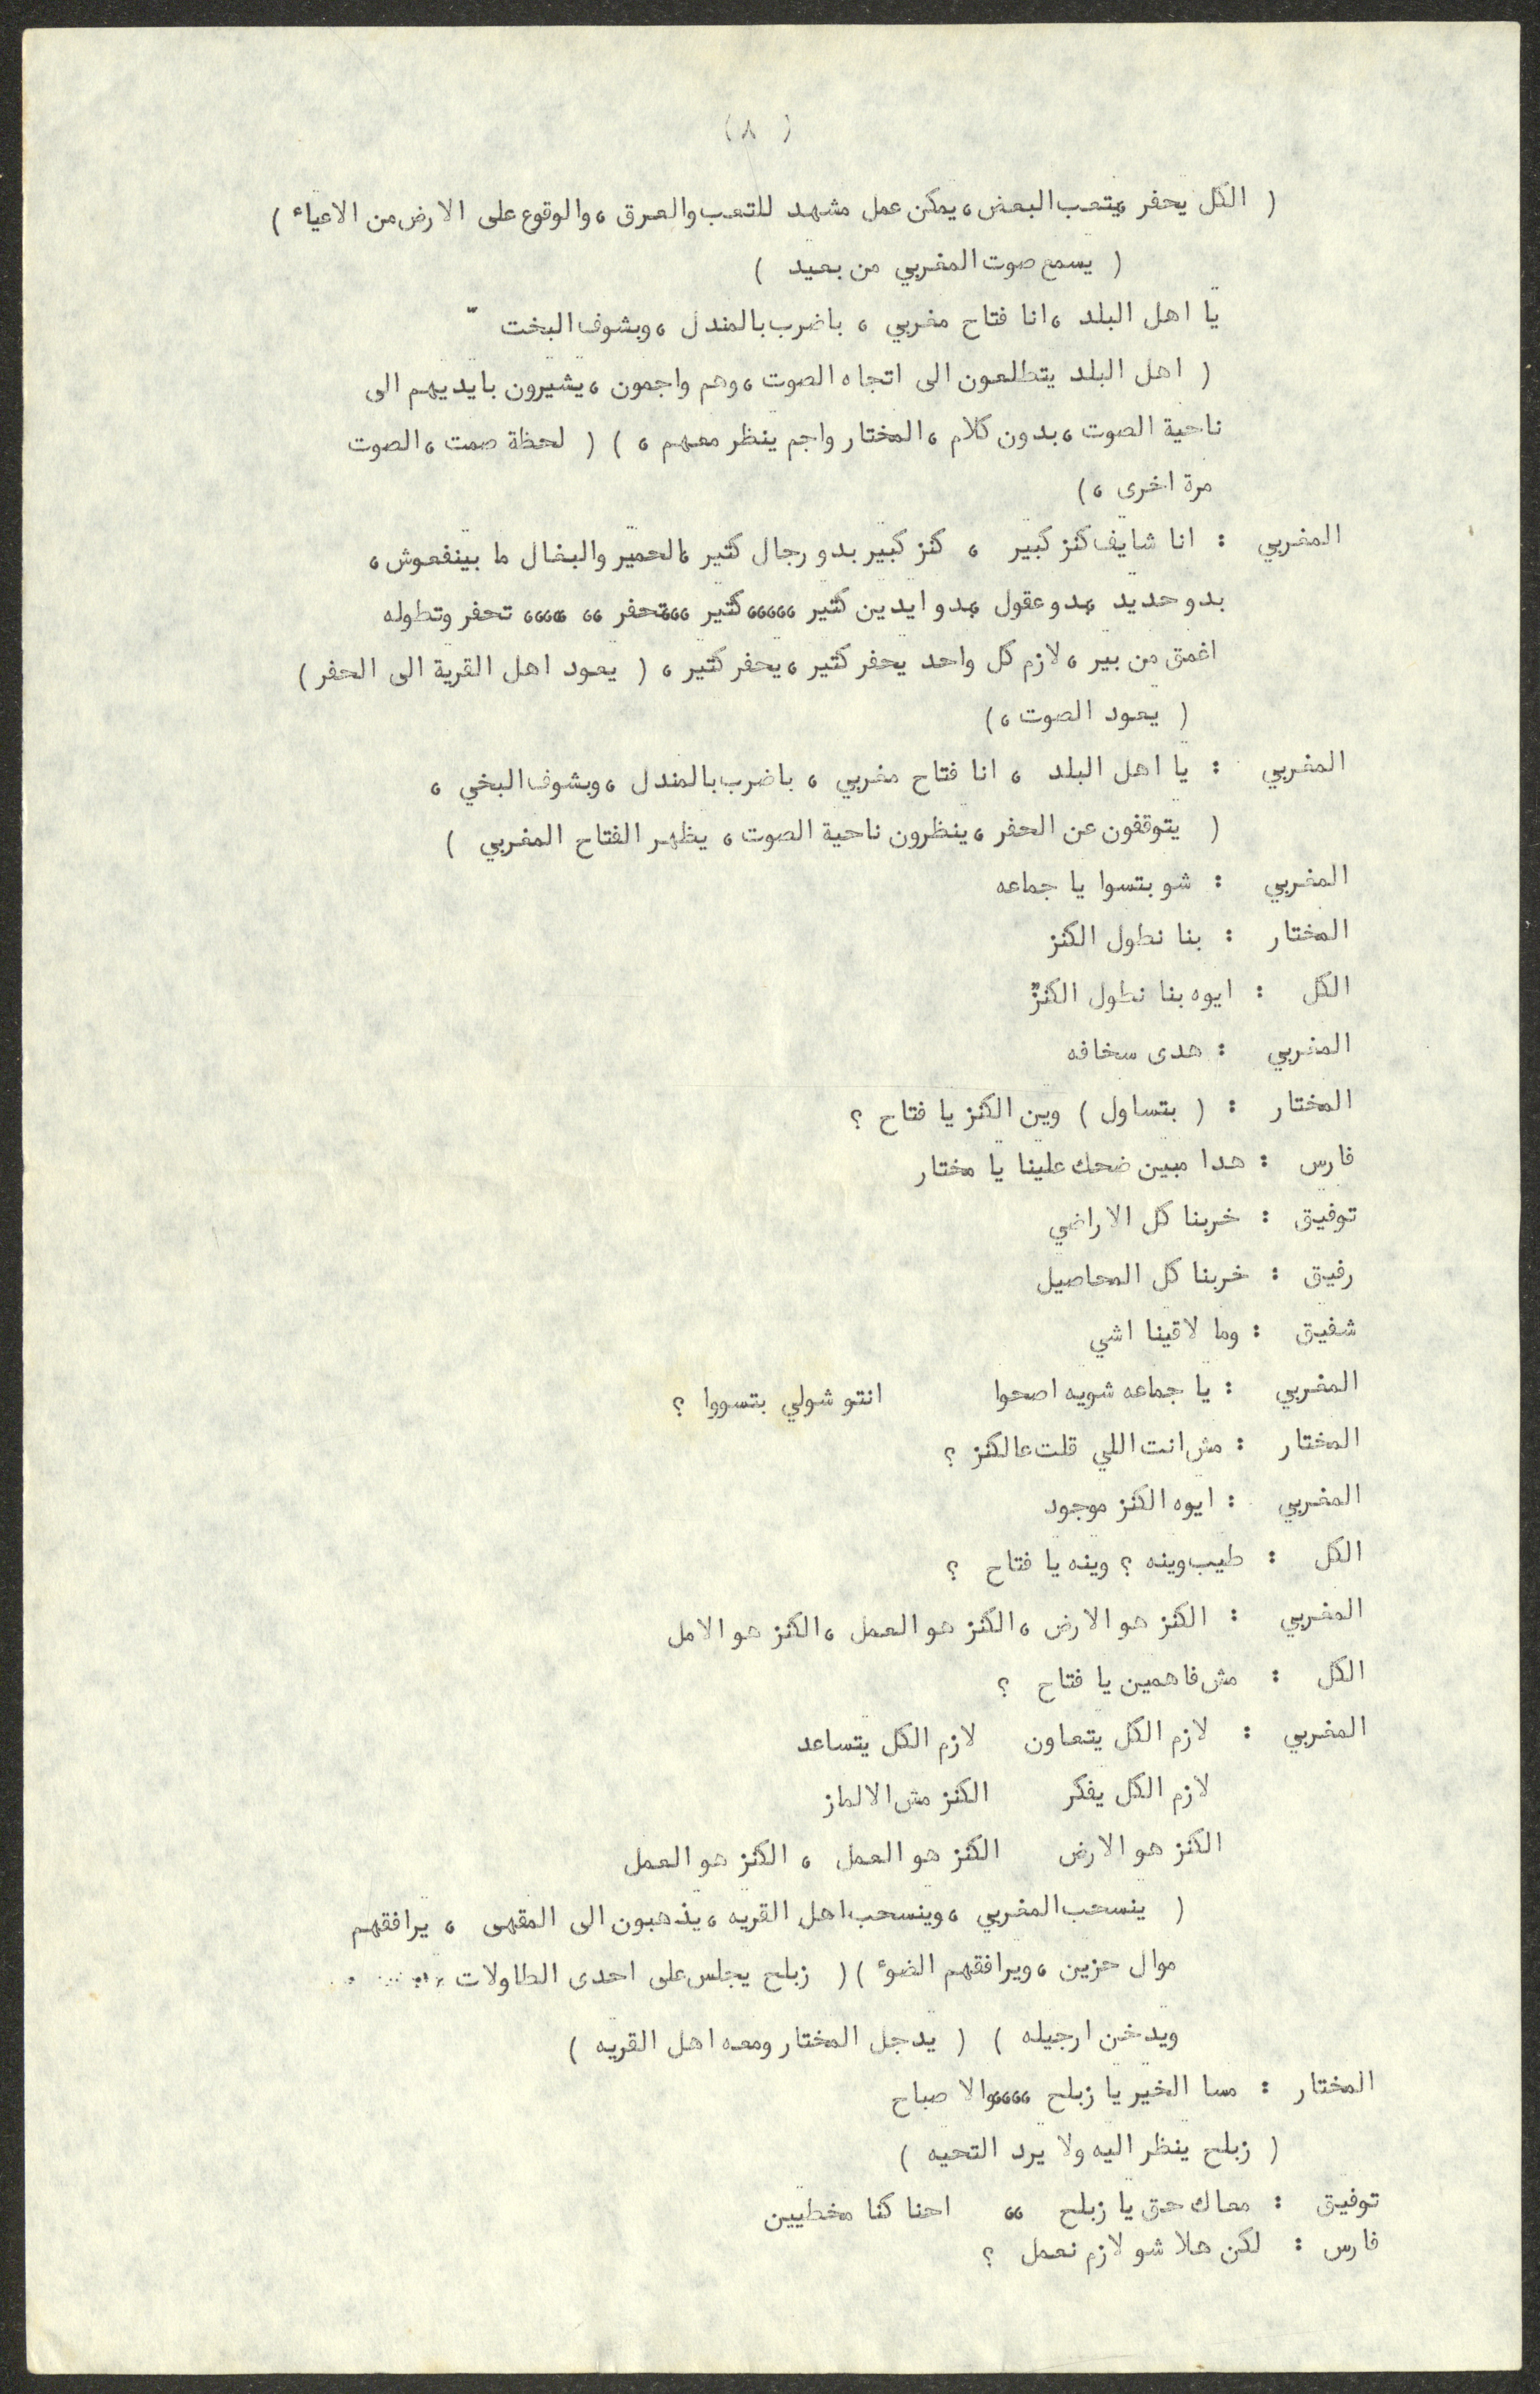 ( ٨ )
( الكل يحفر ، يتعب البعض ، يمكن عمل مشهد للتعب والعرق ، والوقوع على الارض من الاعياء )
( يسمع صوت المغربي من بعيد )
يا اهل البلد ، انا فتاح مغربي ، باضرب بالمندل ، وبشوف البخت "
( اهل البلد يتطلعون الى اتجاه الصوت ، وهم واجمون ، يشيرون بايديهم الى
ناحية الصوت ، بدون كلام ، المختار واجم ينظر معهم ، ) ( لحظة صمت ، الصوت
مرة اخرى ، )
المغربي : انا شايف كنز كبير ، كنز كبير بدو رجال كتير ، الحمير والبغال ما بينفعوش ،
بدو حديد ، بدو عقول ، بدو ايدين كتير ،،،،، كتير ،،، تحفر ،، ،،،، تحفر وتطوله
اغمق من بير ، لازم كل واحد يحفر كتير ، يحفر كتير ، ( يعود اهل القرية الى الحفر )
( يعود الصوت ، )
المغربي : يا اهل البلد ، انا فتاح مغربي ، باضرب بالمندل ، وبشوف البخي ،
( يتوقفون عن الحفر ، ينظرون ناحية الصوت ، يظهر الفتاح المغربي )
المغربي : شو بتسوا يا جماعه
المختار : بنا نطول الكنز
الكل : ايوه بنا نطول الكنز"
المغربي : هدى سخافه
المختار : ( بتساول ) وين الكنز يا فتاح ؟
فارس : هدا مبين ضحك علينا يا مختار
توفيق : خربنا كل الاراضي
رفيق : خربنا كل المحاصيل
شفيق : وما لاقينا اشي
المغربي : يا جماعه شويه اصحوا انتو شولي بتسووا ؟
المختار : مش انت اللي قلت عالكنز ؟
المغربي : ايوه الكنز موجود
الكل : طيب وينه ؟ وينه يا فتاح ؟
المغربي : الكنز هو الارض ، الكنز هو العمل ، الكنز هو الامل
الكل : مش فاهمين يا فتاح ؟
المغربي : لازم الكل يتعاون لازم الكل يتساعد
لازم الكل يفكر الكنز مش الالماز
الكنز هو الارض الكنز هو العمل ، الكنز هو العمل
( ينسحب المغربي ، وينسحب اهل القريه ، يذهبون الى المقهى ، يرافقهم
موال حزين ، ويرافقهم الضوء ) ( زبلح يجلس على احدى الطاولات
ويدخن ارجيله ) ( يدجل المختار ومعه اهل القريه )
المختار : مسا الخير يا زبلح ،،،، والا صباح
( زبلح ينظر اليه ولا يرد التحيه )
توفيق : معاك حق يا زبلح ،، احنا كنا مخطيين
فارس : لكن هلا شو لازم نعمل ؟